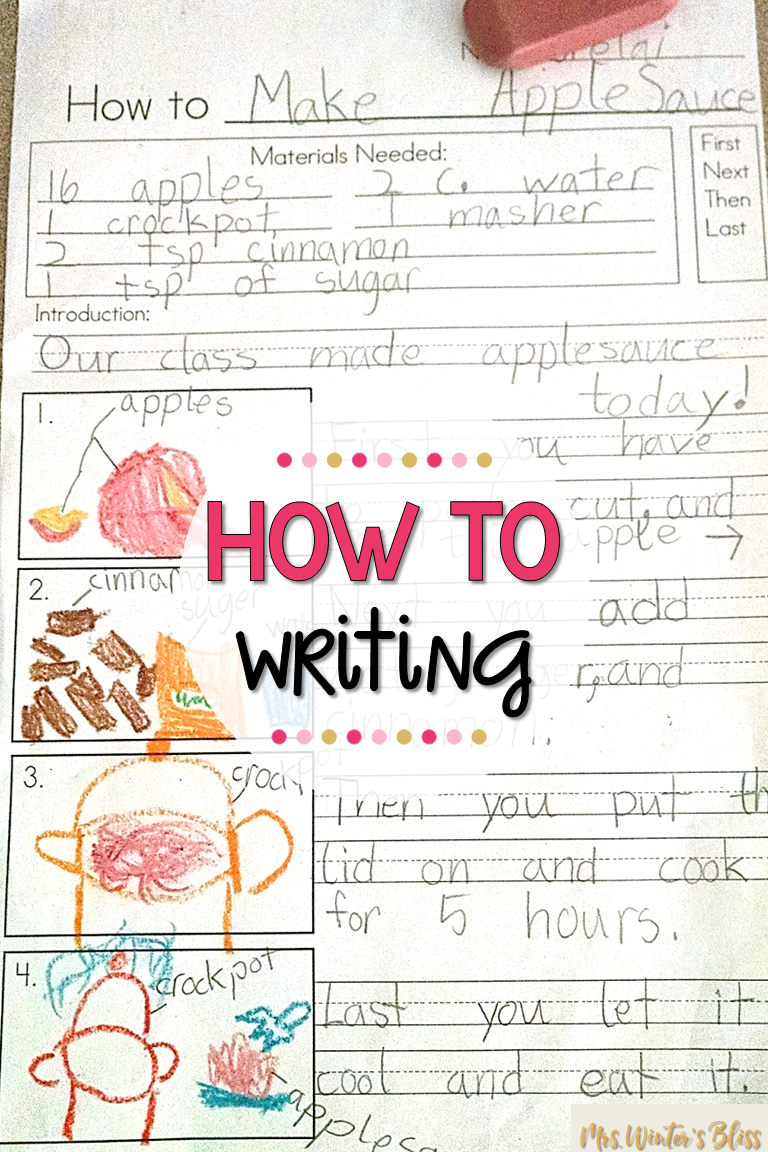 How to Make Apple Sauce
Materials Needed:
16 apples 2 c. water
1 crockpot 1 masher
2 tsp cinnamon
1 tsp of sugar
First
Next
Then
Last
Introduction:
Our class made applesauce
today!
1. apples
First you have
cut, and
apple →
HOW TO
WRITING
2. cinnamon
suger
Next you add
r, and
cinnamon
3.
Then you put th
lid on and cook
for 5 hours.
4. crockpot
Last you let it
cool and eat it.
Mrs. Winter's Bliss